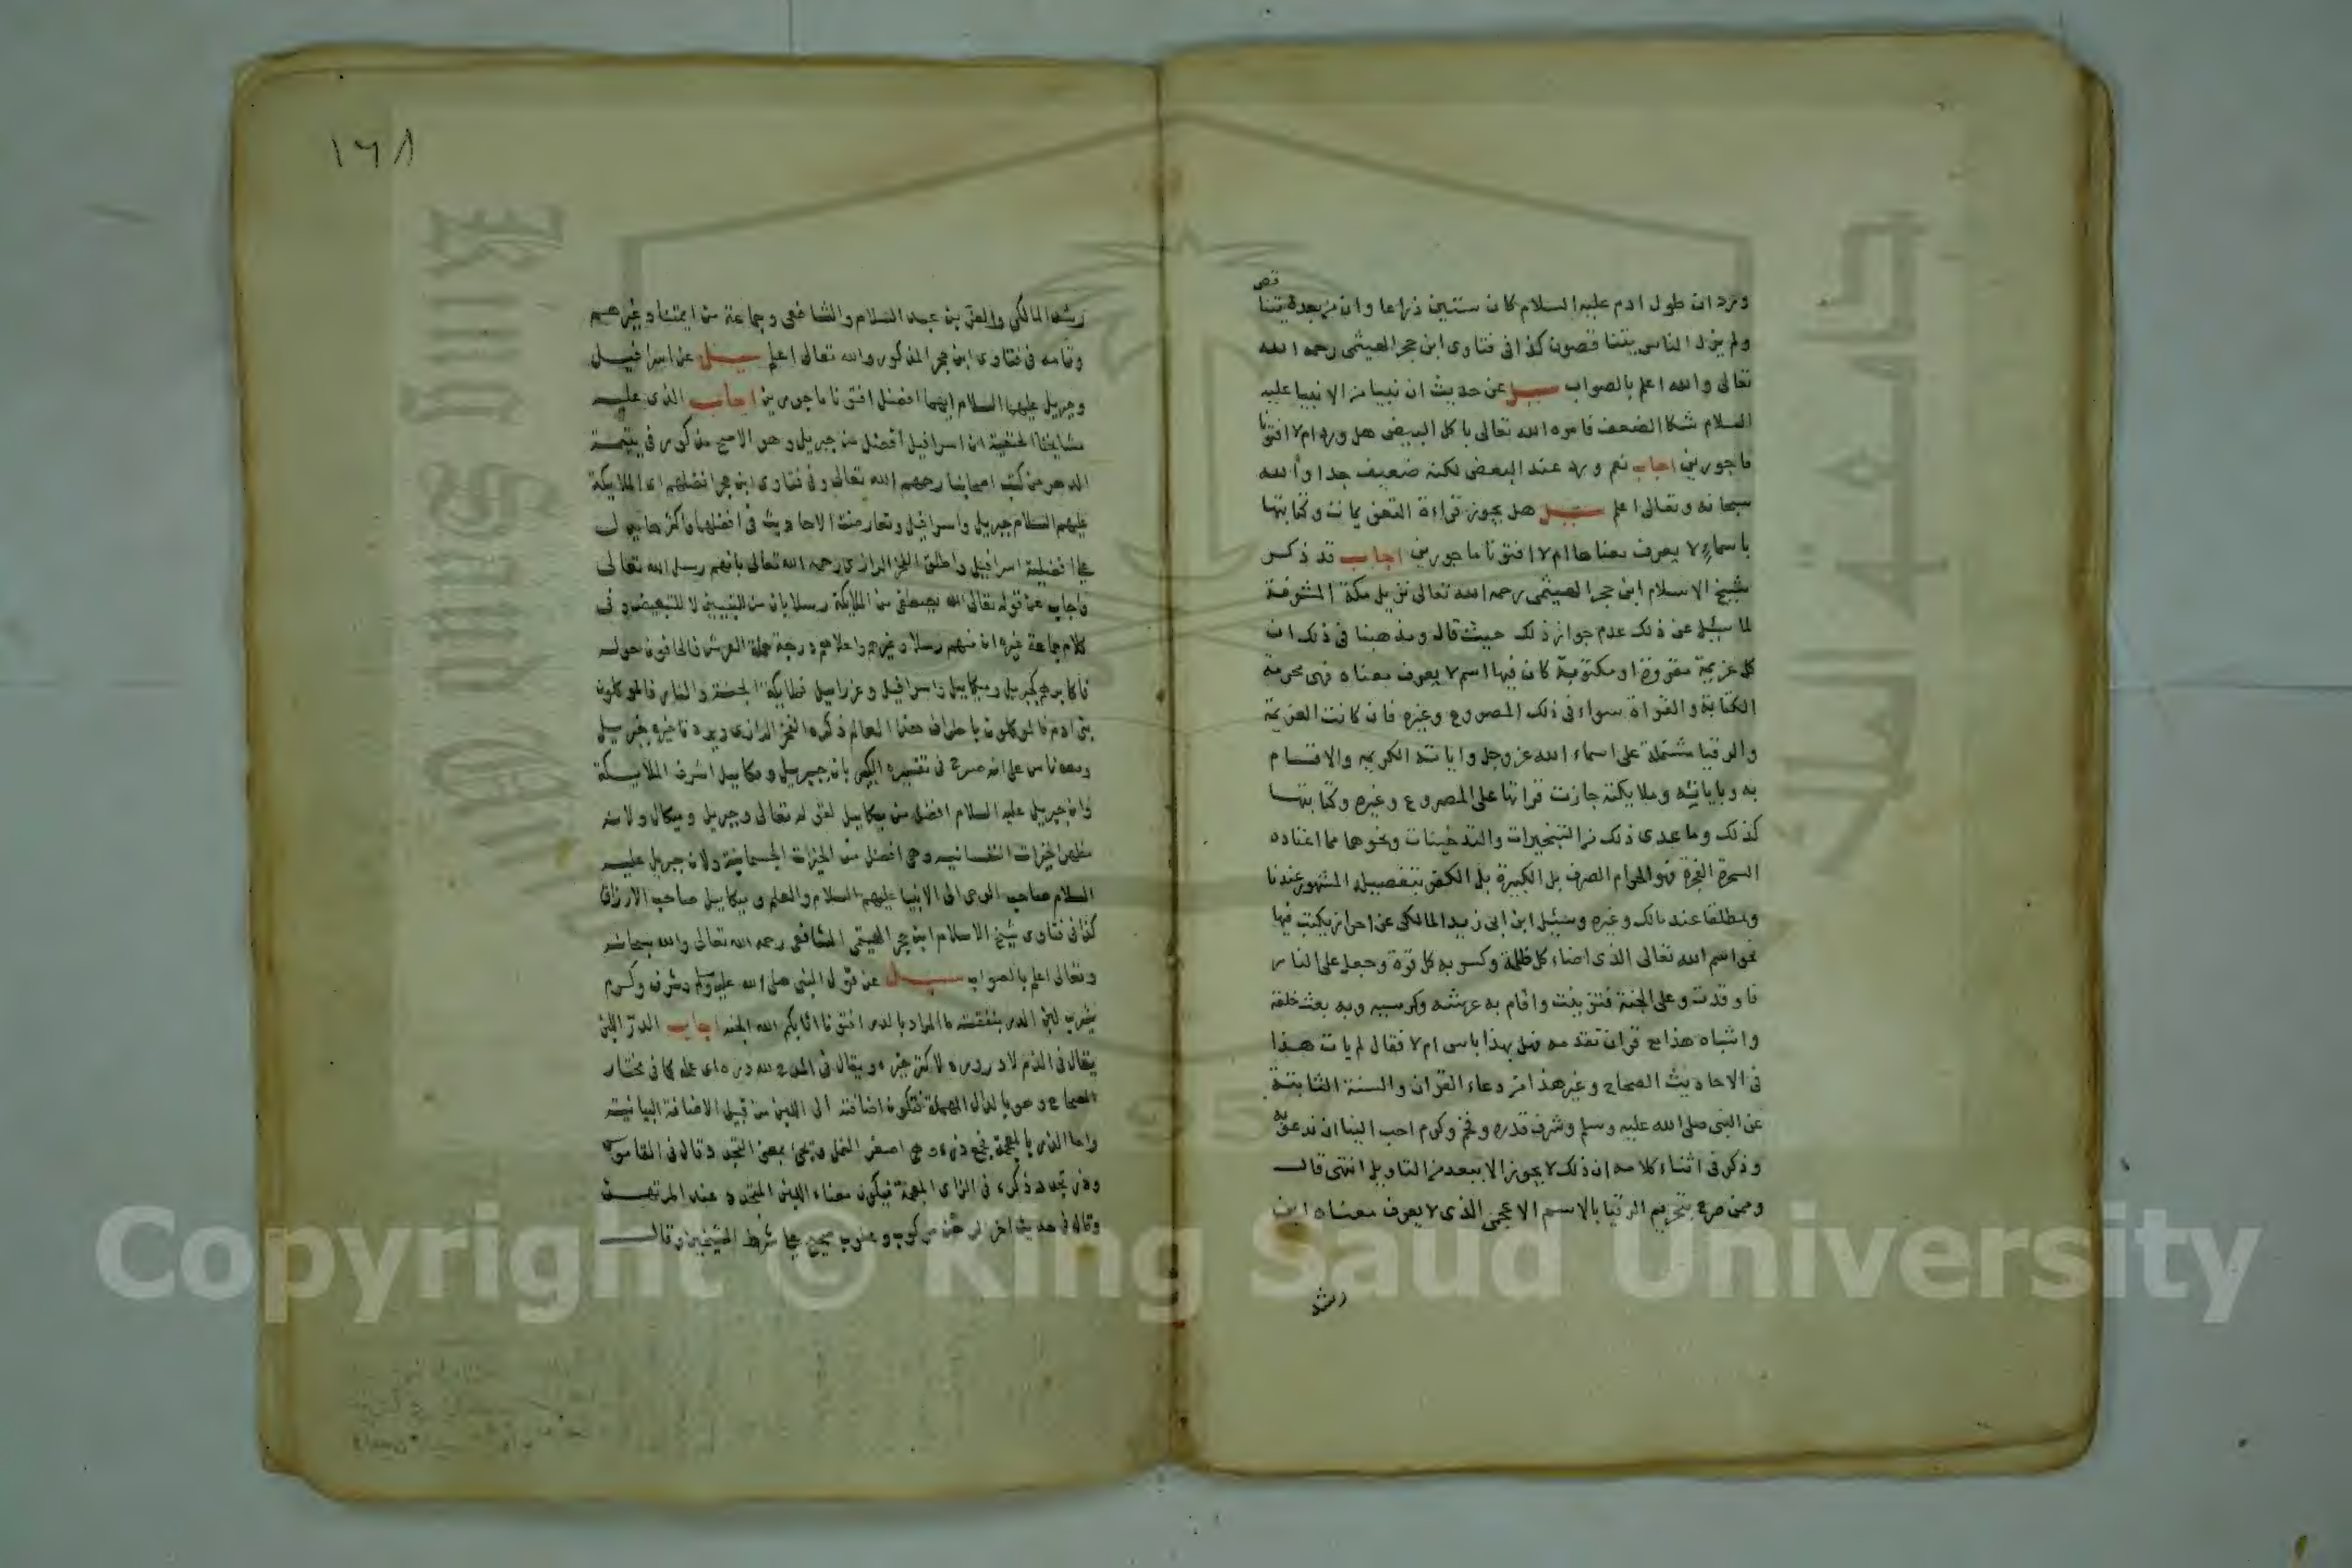 قص
ورد ان طول ادم عليه السلام كان ستين ذراعا وان من بعده يتنا
ولم يزل الناس يتناقصون كذا فى فتاوى ابن حجر الهيثمى رحمه الله
تعالى والله اعلم بالصواب سيل عن حديث ان نبيا من الانبيا عليه
السلام شكا الضعف فامره الله تعالى باكل البيض هل ورد ام لا افتونا
ماجورين اجاب نعم ورد عند البعض لكنه ضعيف جدا والله
سبحانه وتعالى اعلم سيل هل يجوز قراءة وكتابتها
باسماء لا يعرف معناها ام لا افتونا ماجورين اجاب قد ذكر
شيخ الاسلام ابن حجر الهيثمى رحمه الله تعالى نزيل مكة المشرفة
لما سيل عن ذلك عدم جواز ذلك حيث قال ومذهبنا فى ذلك ان
كل عزيمة مقروة او مكتوبة كان فيها اسم لا يعرف معناه فهى محرمة
الكتابة والقراة سواء فى ذلك المصروع وغيره فان كانت العزيمة
والرقيا مشتملة على اسماء الله عز وجل واياته الكريمه والاقسام
به وباياته وملايكته جازت قراتها على المصروع وغيره وكتابتها
كذلك وما عدى ذلك من التبخيرات والتدخينات ونحوها مما اعتاده
السحرة الفجرة فهو الحرام الصرف بل الكبيرة بل الكفر بتفصيله المشهور عندنا
ومطلقا عند مالك وغيره وسئل ابن ابى زيد المالكى عن احراز يكتب فيها
نحو اسم الله تعالى الذى اضاء كل ظلمة وكسر به كل قوة وجعله على النار
فاوقدت وعلى الجنة فتزينت واقام به عرشه وكرسيه وبه بعث خلقه
واشباه هذا مع قران تقدمه فهل بهذا باس ام لا فقال لم يات هذا
فى الاحاديث الصحاح وغير هذا من دعاء القران والسنة الثابتة
عن النبى صلى الله عليه وسلم وشرف قدره وفخم وكرم احب الينا ان ندعو به
وذكر فى اثناء كلامه ان ذلك لا يجوز الا ببعد من التاويل انتهى قال
وممن صرح بتحريم الرقيا بالاسم الاعجمى الذى لا يعرف معناه ابن
رشد
١٦٨
رشد المالكى والعز بن عبد السلام والشافعى وجماعة من ايمتنا وغيرهم
وتمامه فى فتاوى ابن حجر المذكور والله تعالى اعلم سيل عن اسرافيل
وجبريل عليهما السلام ايهما افضل افتونا ماجورين اجاب الذى عليه
مشايخنا الحنفية ان اسرافيل افضل من جبريل وهو الاصح مذكور فى يتيمة
الدهر من كتب اصحابنا رحمهم الله تعالى وفى فتاوى ابن حجر افضلهم اى الملايكة
عليهم السلام جبريل واسرافيل وتعارضت الاحاديث فى افضلهما واكثرها يدل
على افضلية اسرافيل واطلق الفخر الرازى رحمه الله تعالى بانهم رسل الله تعالى
واجاب عن قوله تعالى الله يصطفى من الملايكة رسلا بان من للتبيين لا للتبعيض وفى
كلام جماعة غيره ان منهم رسلا وغيرهم واعلاهم درجة حملة العرش فالحافون حوله
فاكابرهم كجبريل وميكاييل واسرافيل وعزراييل فملايكة الجنة والنار فالموكلون
ببنى ادم فالموكلون باطراف هذا العالم ذكره الفخر الرازى ويرد تاخيره جبريل
ومعه ناس على انه صرح فى تفسيره الكبير بان جبريل وميكاييل اشرف الملايكة
وان جبريل عليه السلام افضل من ميكاييل لقوله تعالى وجبريل وميكال ولانه
مظهر الخيرات النفسانيه وهى افضل من الخيرات الجسمانية ولان جبريل عليه
السلام صاحب الوحى الى الانبيا عليهم السلام والعلم وميكاييل صاحب الارزاق
كذا فى فتاوى شيخ الاسلام ابن حجر الهيتمى الشافعى رحمه الله تعالى والله سبحانه
وتعالى اعلم بالصواب سيل عن قول النبى صلى الله عليه وسلم وشرف وكرم
يشرب لبن الدر بنفقته ما المراد بالدر افتونا اثابكم الله الجنه اجاب الدر اللبن
يقال فى الذم لا در دره لا كثر خيره ويقال فى المدح لله دره اى عمله كما فى مختار
الصحاح وهو بالدال المهملة فتكون اضافته الى اللبن من قبيل الاضافة البيانية
واما الذر بالمعجمة جمع ذرة وهى اصغر النمل
الرهن مركوب ومحلوب صحيح على شرط الشيخين وقال
Copyright © King Saud University